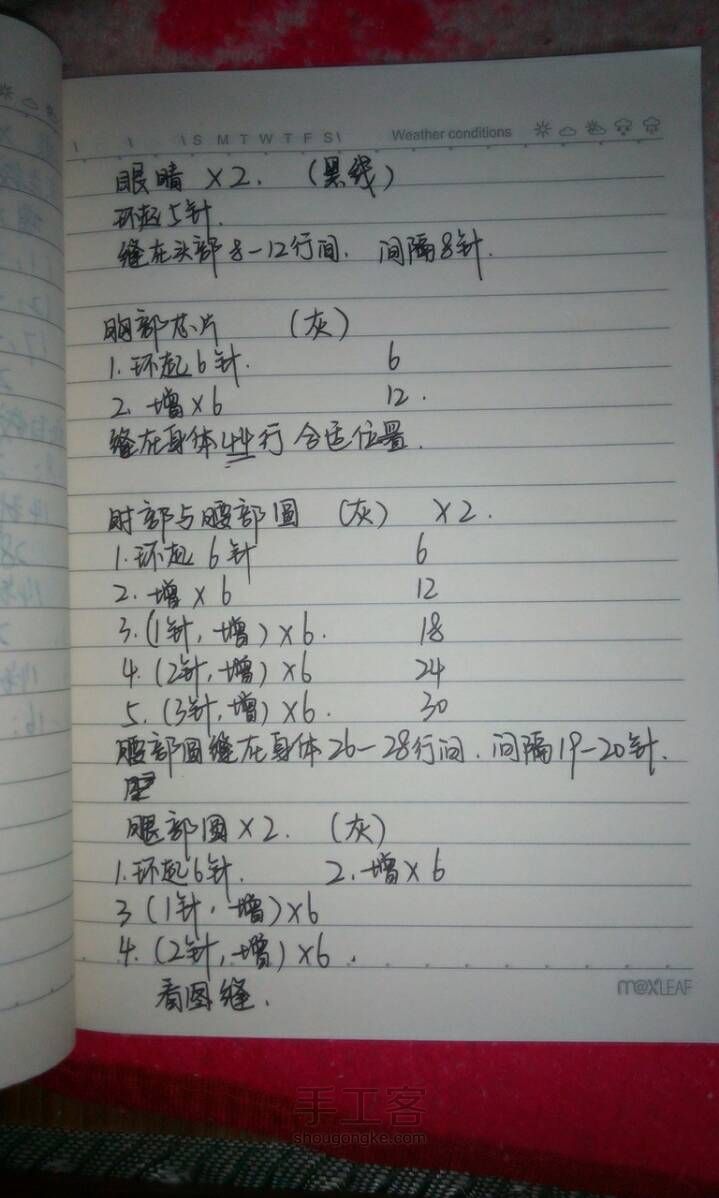 S M T W T F S Weather conditions
眼睛 ×2. (黑线)
环起5针.
缝在头部8-12行间. 间隔8针.
胸部芯片 (灰)
1. 环起6针. 6
2. 增×6 12.
缝在身体44行 合适位置.
肘部与腰部圆 (灰) ×2.
1. 环起 6针 6
2. 增×6 12
3. (1针, 增)×6. 18
4. (2针, 增)×6 24
5. (3针, 增)×6. 30
腰部圆缝在身体26-28行间. 间隔19-20针.
腿部圆×2. (灰)
1. 环起6针. 2. 增×6
3 (1针, 增)×6
4. (2针, 增)×6.
看图缝.
m@xLEAF
手工客
shougongke.com